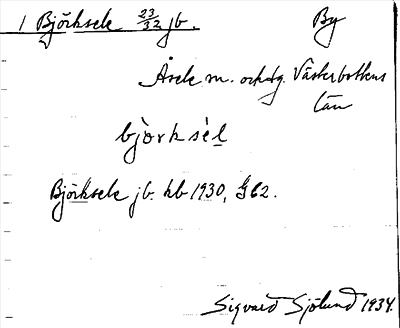 1 Björksele 23/32 jb. By
Åsele m. och dg. Västerbottens
län
bjò̀rksèl
Björksele jb. kb 1930, G62.
Sigvard Sjölund 1934.